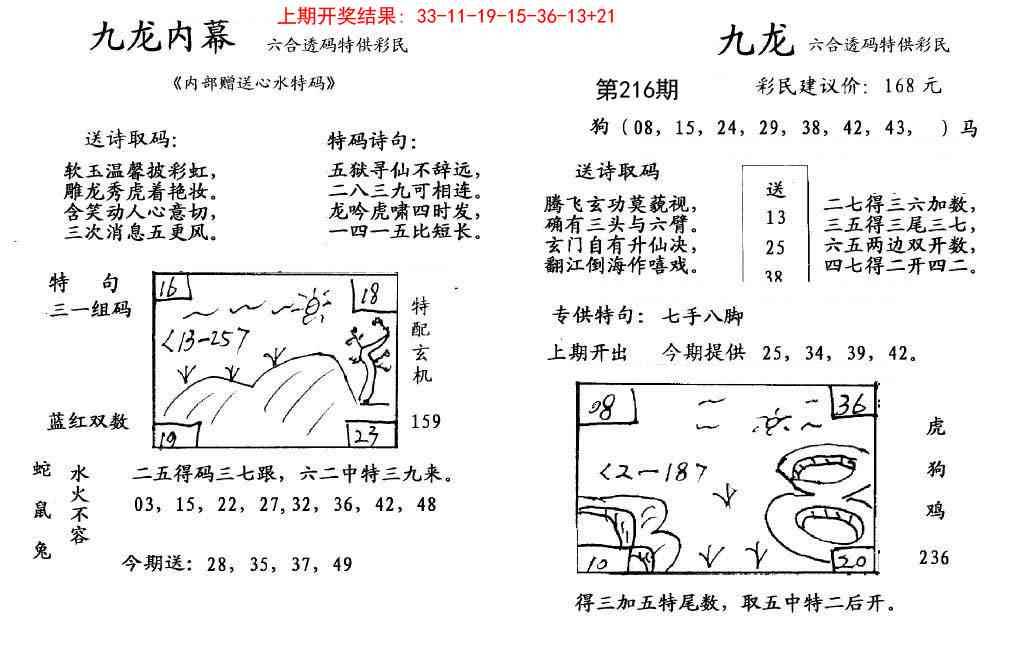 上期开奖结果：33-11-19-15-36-13+21
九龙内幕 六合透码特供彩民
《内部赠送心水特码》
送诗取码：
软玉温馨披彩虹，
雕龙秀虎着艳妆。
含笑动人心意切，
三次消息五更风。
特码诗句：
五狱寻仙不辞远，
二八三九可相连。
龙吟虎啸四时发，
一四一五比短长。
特 句
三一组码
蓝红双数
16
18
<13-25>
19
23
特配玄机
159
蛇鼠兔
水火不容
二五得码三七跟，六二中特三九来。
03，15，22，27,32，36，42，48
今期送：28，35，37，49
九龙 六合透码特供彩民
第216期 彩民建议价：168元
狗（08，15，24，29，38，42，43， ）马
送诗取码
腾飞玄功莫藐视，
确有三头与六臂。
玄门自有升仙决，
翻江倒海作嘻戏。
送
13
25
38
二七得三六加数，
三五得三尾三七，
六五两边双开数，
四七得二开四二。
专供特句：七手八脚
上期开出 今期提供 25，34，39，42。
08
36
<2-18>
10
20
虎
狗
鸡
236
得三加五特尾数，取五中特二后开。